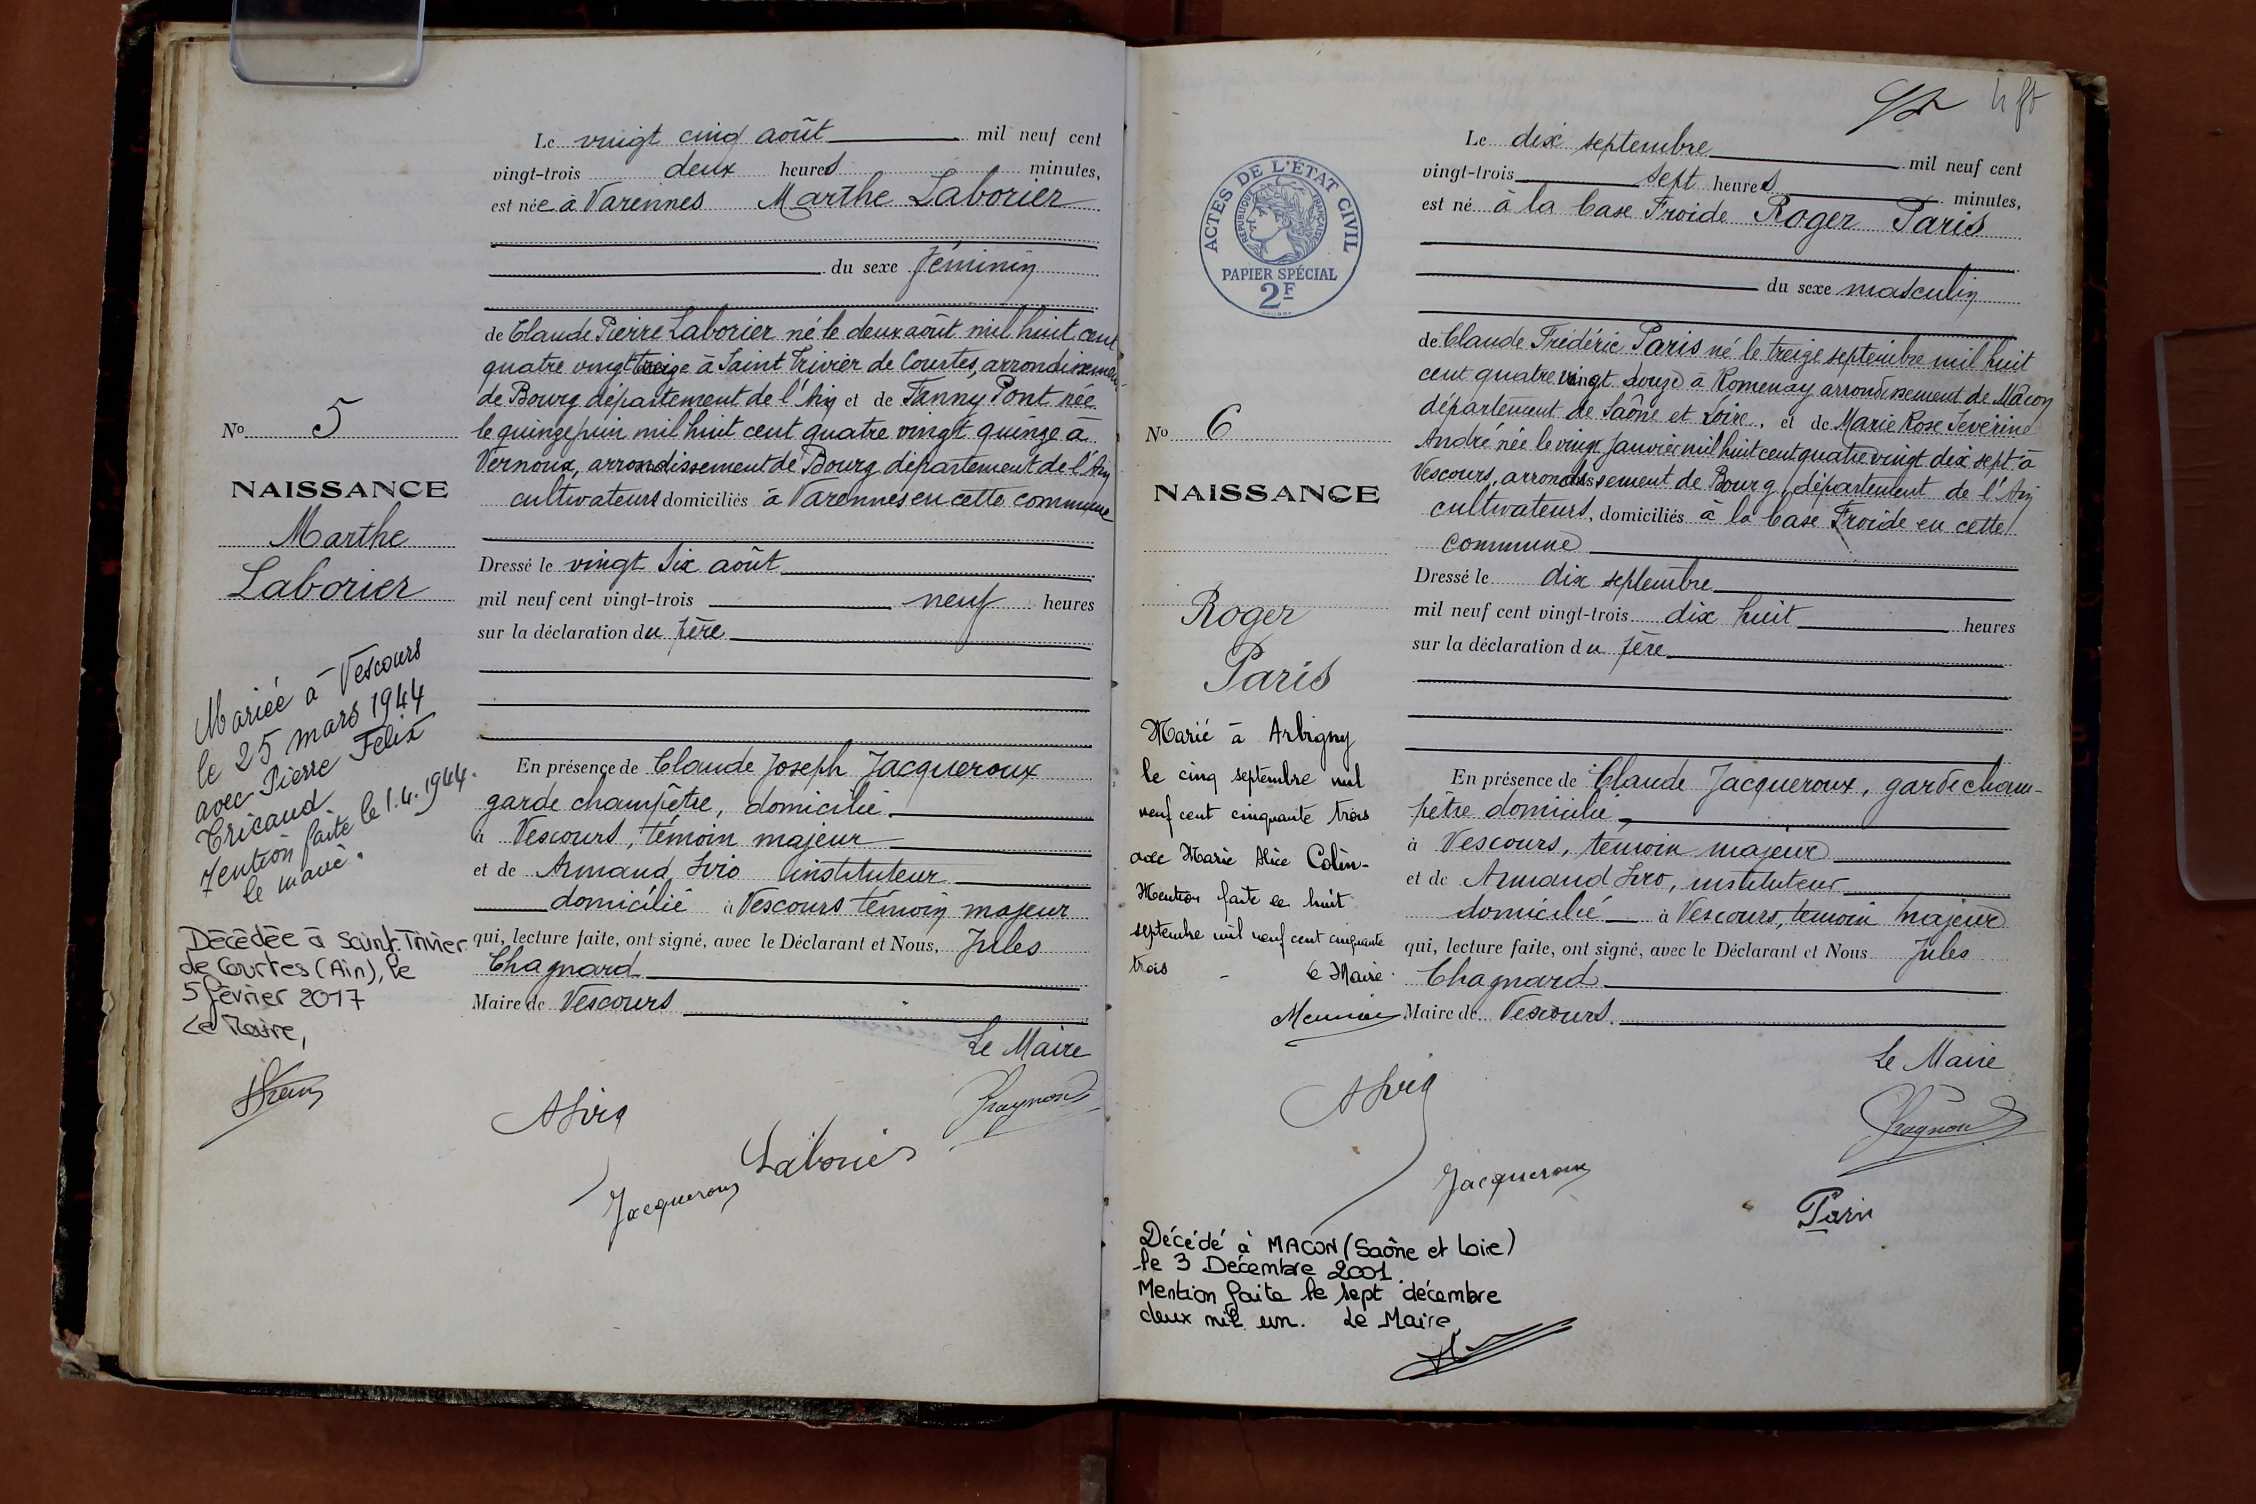 Le vingt cinq août mil neuf cent
vingt-trois deux heures minutes,
est née à Varennes Marthe Laborier
du sexe féminin
de Claude Pierre Laborier né le deux août mil huit cent
quatre vingt treize à Saint Trivier de Courtes, arrondissement
de Bourg département de l'Ain et de Fanny Pont née
le quinze juin mil huit cent quatre vingt quinze à
Vernoux, arrondissement de Bourg département de l'Ain
cultivateurs domiciliés à Varennes en cette commune
Dressé le vingt six août
mil neuf cent vingt-trois neuf heures
sur la déclaration du père
En présence de Claude Joseph Jacqueroux
garde champêtre, domicilié
à Vescours, témoin majeur
et de Armand Sirio instituteur
domicilié à Vescours témoin majeur
qui, lecture faite, ont signé, avec le Déclarant et Nous, Jules
Chagnard
Maire de Vescours
Le Maire
Jacqueroux
Laborier
No 5
NAISSANCE
Marthe
Laborier
Mariée à Vescours
le 25 mars 1944
avec Pierre Felix
Tricaud
mention faite le 1.4.1944.
le maire.
Décédée à Saint-Trivier
de Courtes (Ain), le
5 février 2017
Le Maire,
Le dix septembre mil neuf cent
vingt-trois sept heures minutes,
est né à la Case Froide Roger Paris
du sexe masculin
de Claude Frédéric Paris né le treize septembre mil huit
cent quatre vingt douze à Romenay arrondissement de Mâcon
département de Saône et Loire, et de Marie Rose Séverine
André née le vingt janvier mil huit cent quatre vingt dix sept à
Vescours, arrondissement de Bourg, département de l'Ain
cultivateurs, domiciliés à la Case Froide en cette
commune
Dressé le dix septembre
mil neuf cent vingt-trois dix huit heures
sur la déclaration du père
En présence de Claude Jacqueroux, garde cham-
pêtre domicilié
à Vescours, témoin majeur
et de Armand Siro, instituteur
domicilié à Vescours, témoin majeur
qui, lecture faite, ont signé, avec le Déclarant et Nous Jules
Chagnard
Maire de Vescours.
Le Maire
Jacqueroux
Paris
ACTES DE L'ÉTAT CIVIL
RÉPUBLIQUE FRANÇAISE
PAPIER SPÉCIAL
2F
No 6
NAISSANCE
Roger
Paris
Marié à Arbigny
le cinq septembre mil
neuf cent cinquante trois
avec Marie Alice Colin-
Mention faite le huit
septembre mil neuf cent cinquante
trois - Le Maire.
Décédé à MACON (Saône et Loire)
le 3 Décembre 2001.
Mention faite le sept décembre
deux mil un. Le Maire,